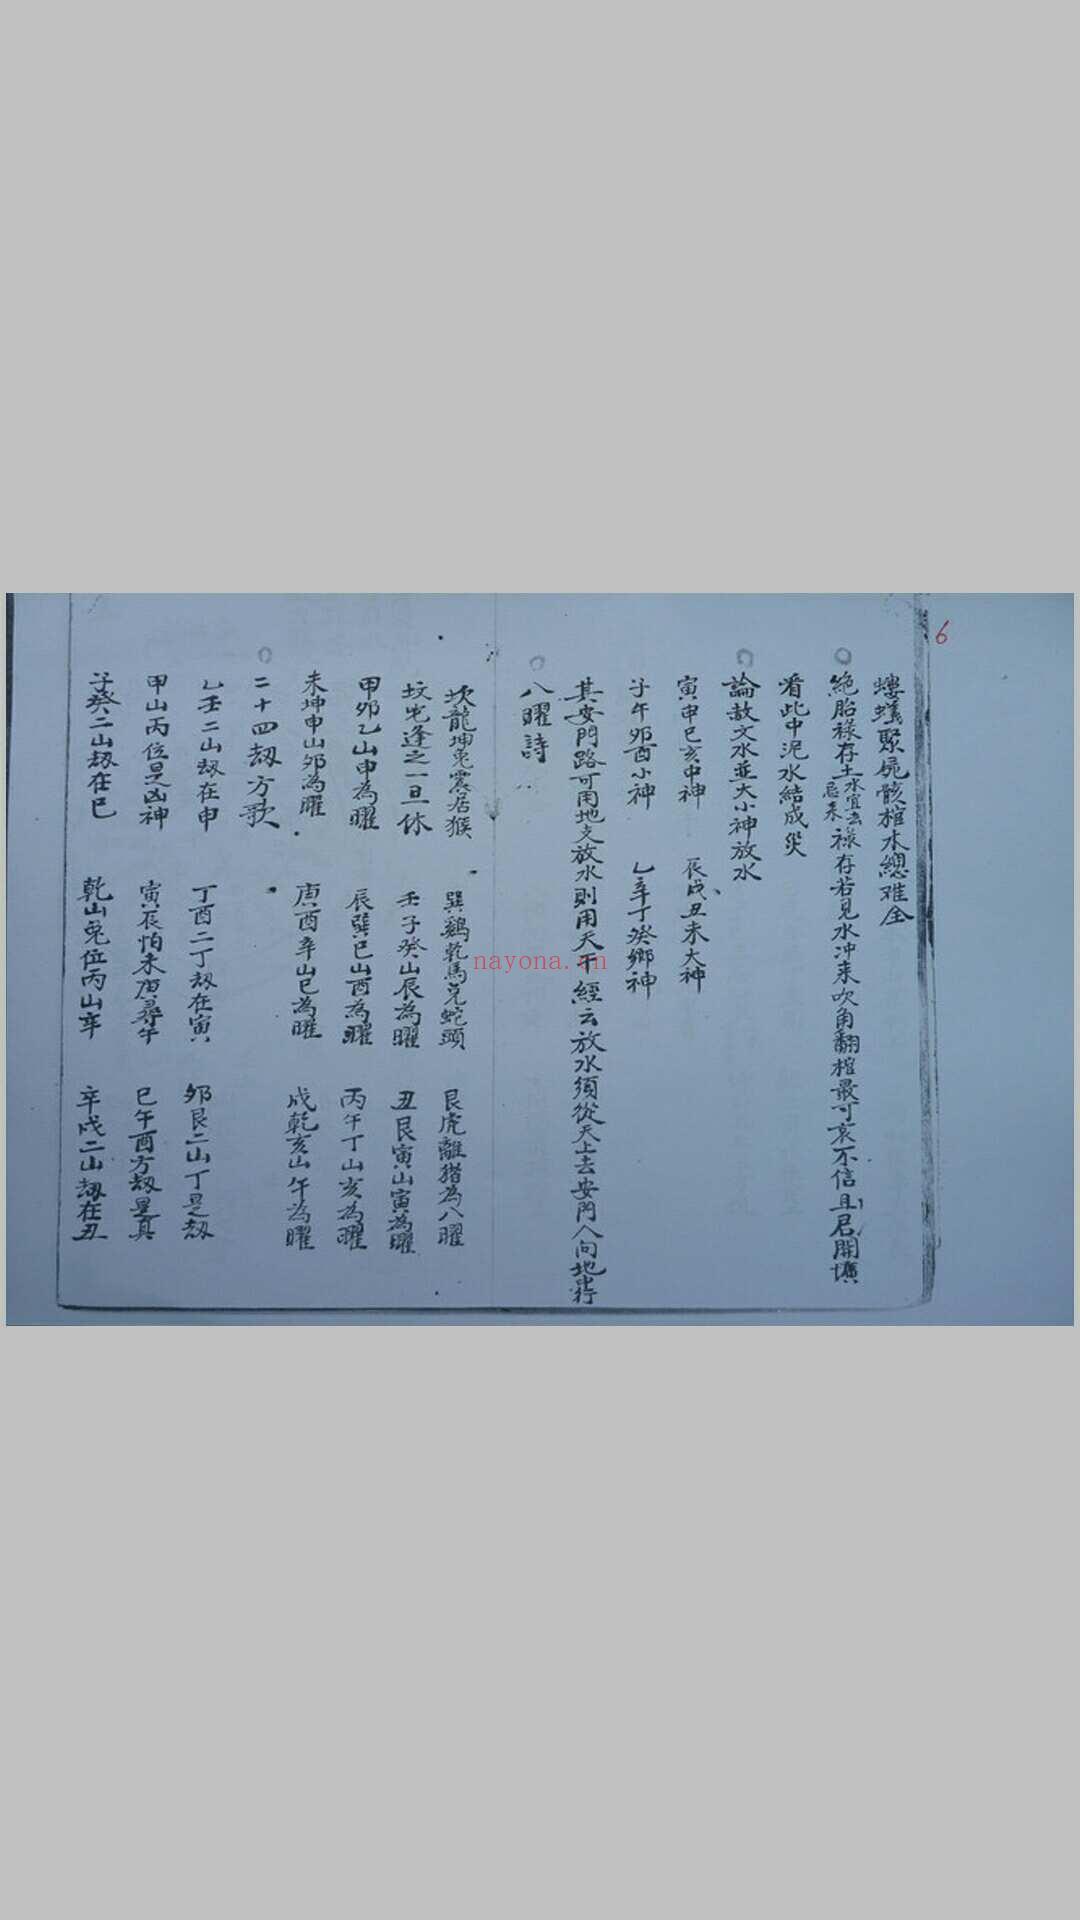 6
螻蟻聚屍骸棺木總难全
絶胎祿存土水宜去忌来祿存若見水冲来吹角翻棺最可哀不信且君開壙
看此中泥水結成災
論赦文水並大小神放水
寅申巳亥中神 辰戌丑未大神
子午夘酉小神 乙辛丁癸鄉神
其安門路可用地支放水則用天干經云放水須從天上去安門人向地中行
八曜詩
坎龍坤兎震居猴 巽鷄乾馬兑蛇頭 艮虎離猪為八曜
坟宅逢之一旦休 壬子癸山辰為曜 丑艮寅山寅為曜
甲夘乙山申為曜 辰巽巳山酉為曜 丙午丁山亥為曜
未坤申山夘為曜 庚酉辛山巳為曜 戌乾亥山午為曜
二十四刼方歌
乙壬二山刼在申 丁酉二丁刼在寅 夘艮二山丁是刼
甲山丙位是凶神 寅辰怕未庚尋午 巳午酉方刼是真
子癸二山刼在巳 乾山兎位丙山辛 辛戌二山刼在丑
nayona.cn